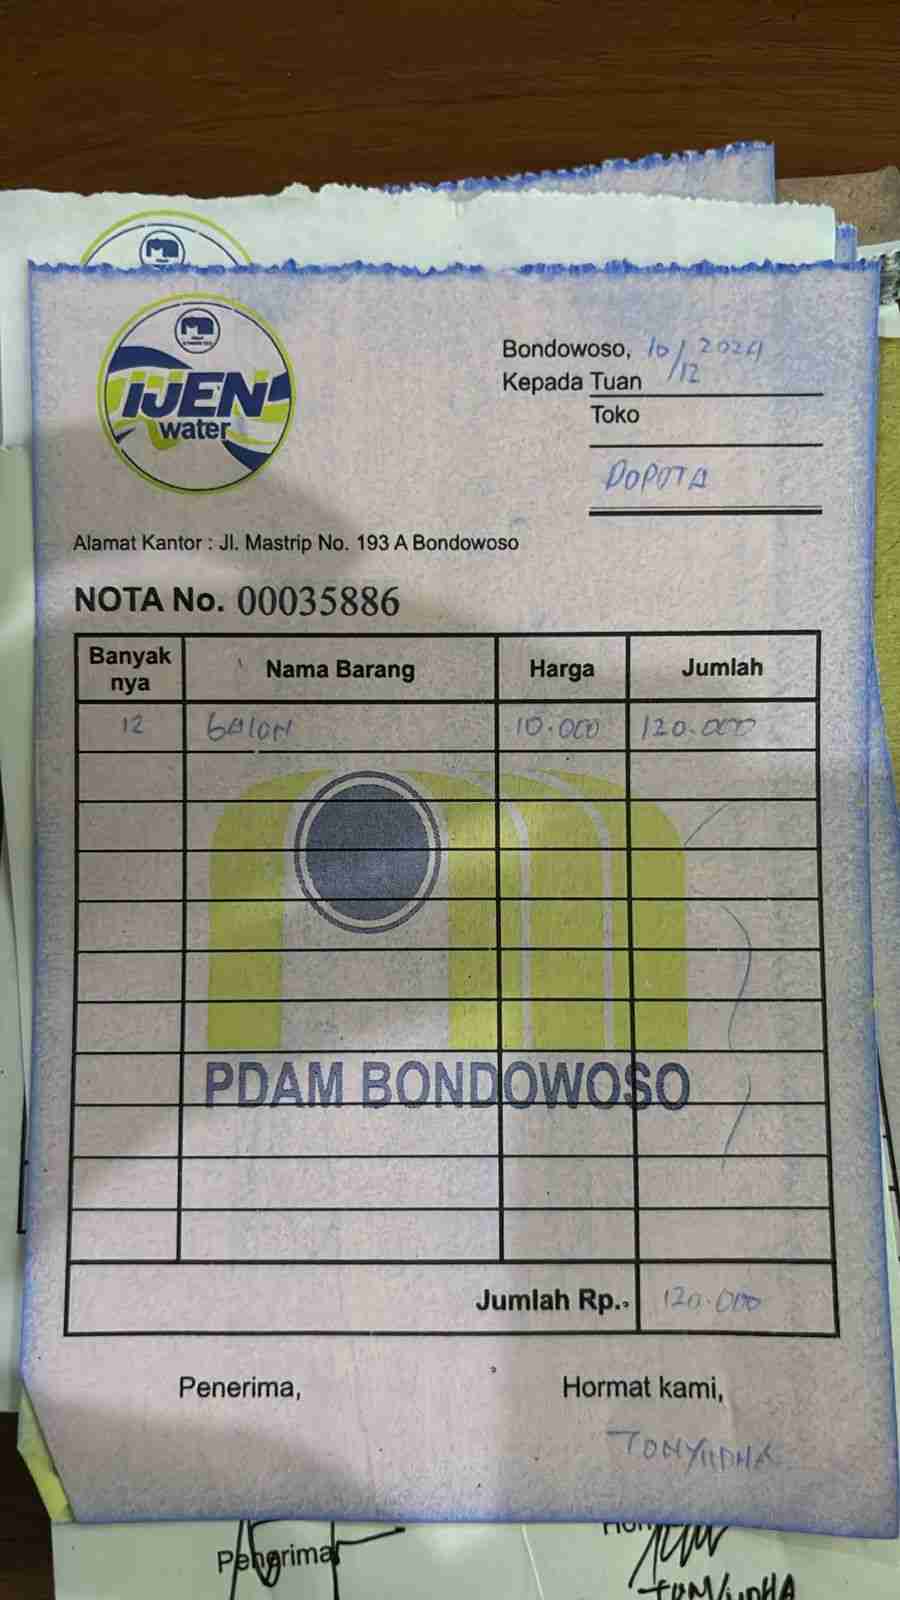 IJEN
water
Bondowoso, 10/12 2024
Kepada Tuan
Toko
POPOTA
Alamat Kantor : Jl. Mastrip No. 193 A Bondowoso
NOTA No. 00035886
Banyak nya Nama Barang Harga Jumlah
12 GALON 10.000 120.000
PDAM BONDOWOSO
Jumlah Rp. 120.000
Penerima, Hormat kami,
TONYUDHA
Penerima
TONYUDHA